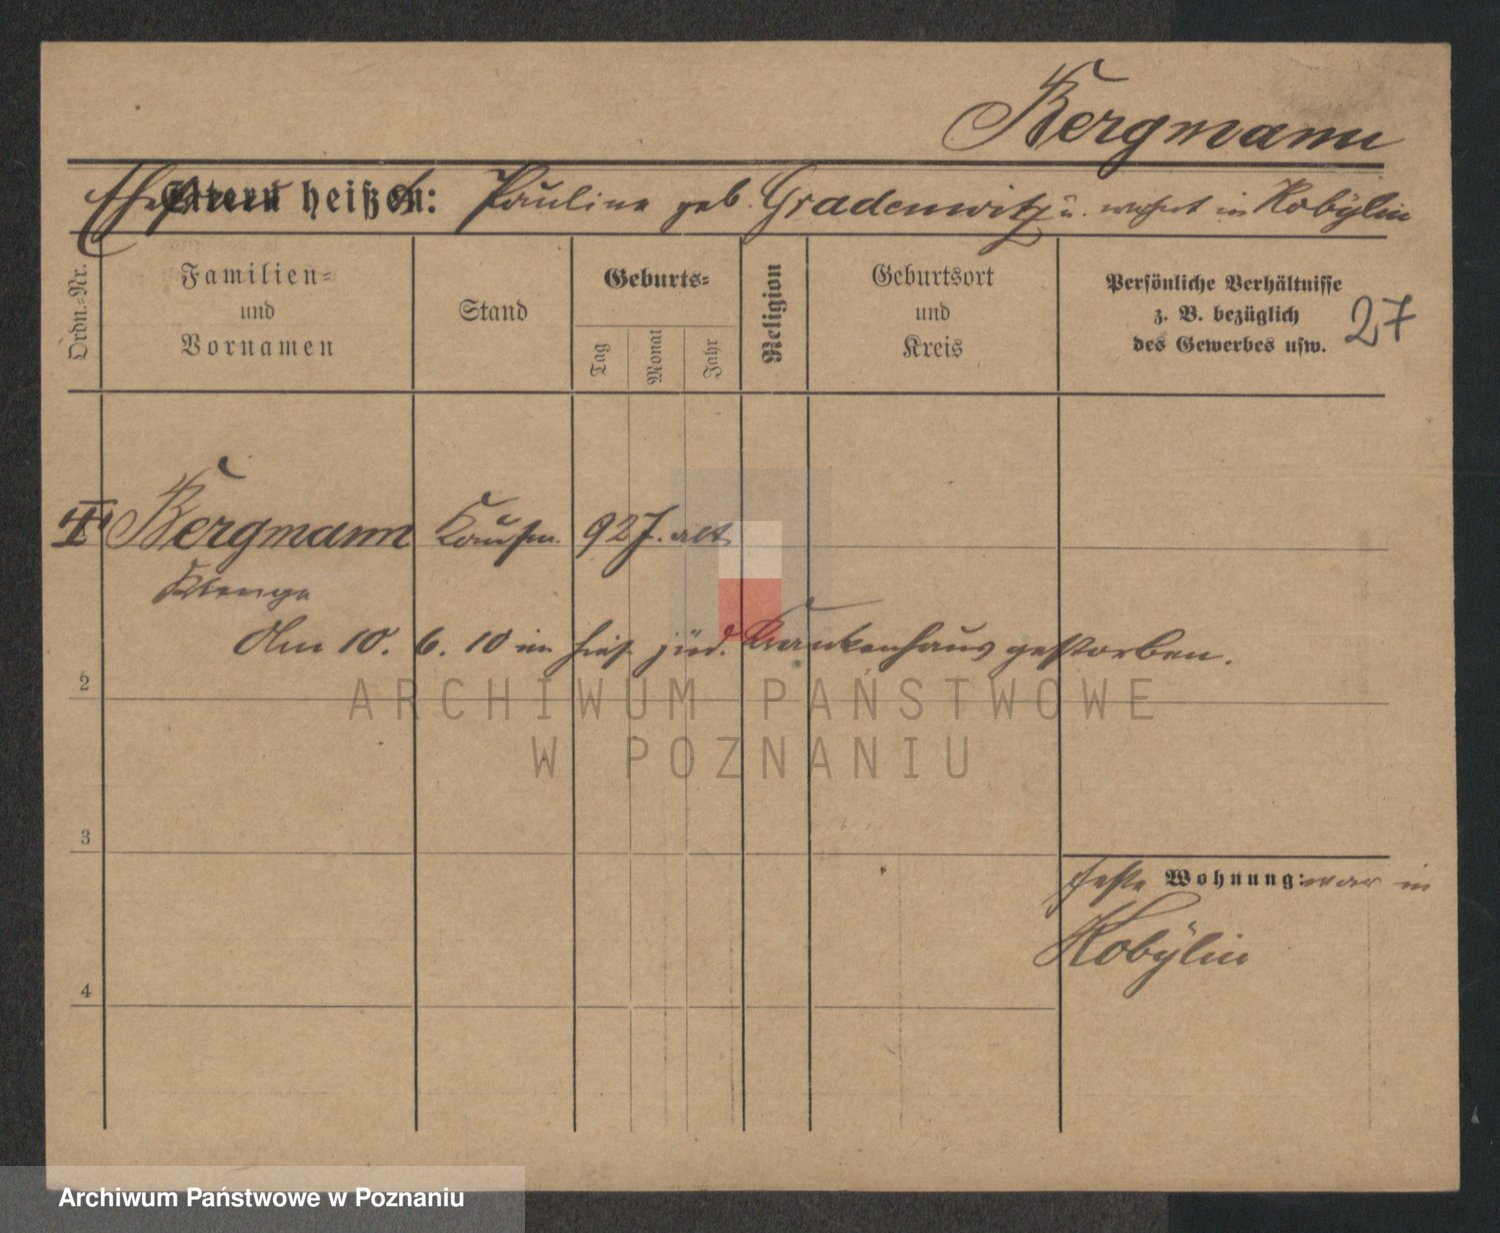 Bergmann
Ehefrau Eltern heißt en: Pauline geb. Gradenwitz u. wohnt in Kobylin
Ordn.-Nr.
Familien-
und
Vornamen
Stand
Geburts-
Tag
Monat
Jahr
Religion
Geburtsort
und
Kreis
Persönliche Verhältnisse
z. B. bezüglich
des Gewerbes usw.
27
I Bergmann Kaufm. 92 J. alt
Am 10. 6. 10 im hies. jüd. Krankenhaus gestorben.
2
ARCHIWUM PAŃSTWOWE
W POZNANIU
3
feste Wohnung: war in
Kobylin
4
Archiwum Państwowe w Poznaniu